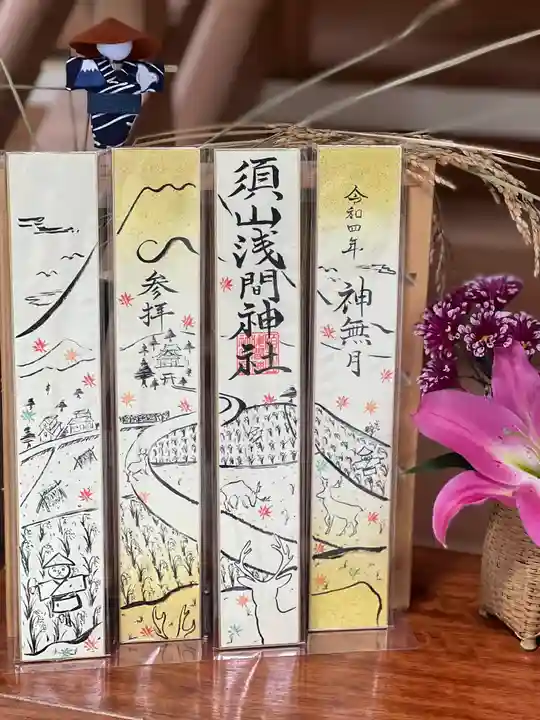 令和四年
神無月
須山浅間神社
参拝